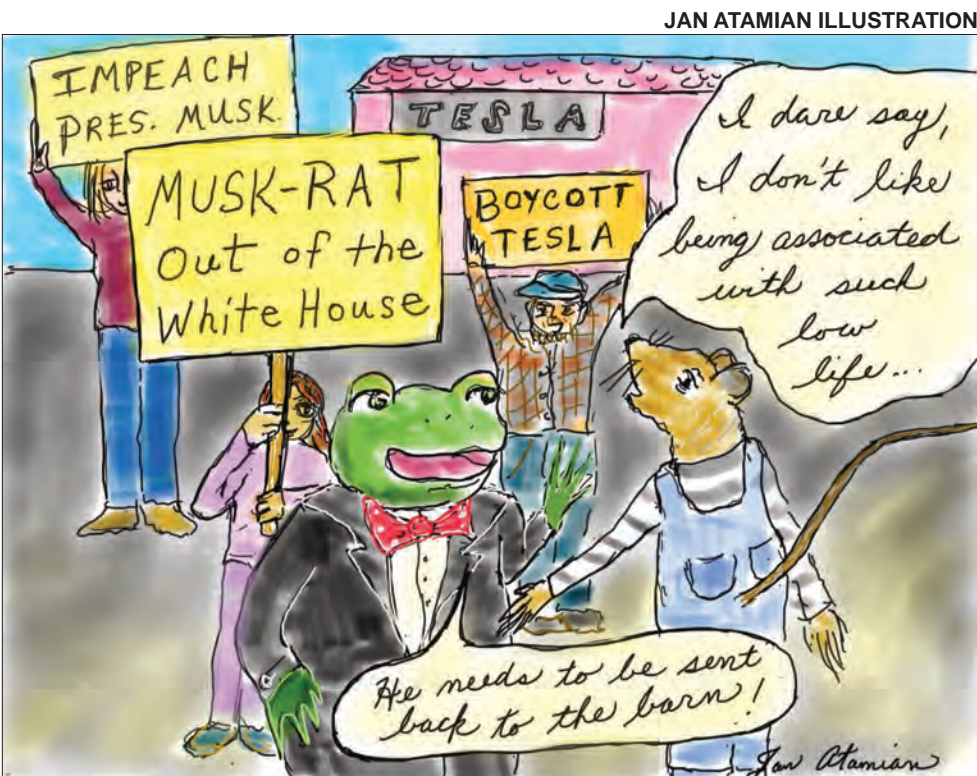 JAN ATAMIAN ILLUSTRATION
IMPEACH
PRES. MUSK.
TESLA
MUSK-RAT
Out of the
White House
BOYCOTT
TESLA
I dare say,
I don't like
being associated
with such
low
life...
He needs to be sent
back to the barn!
Jan Atamian